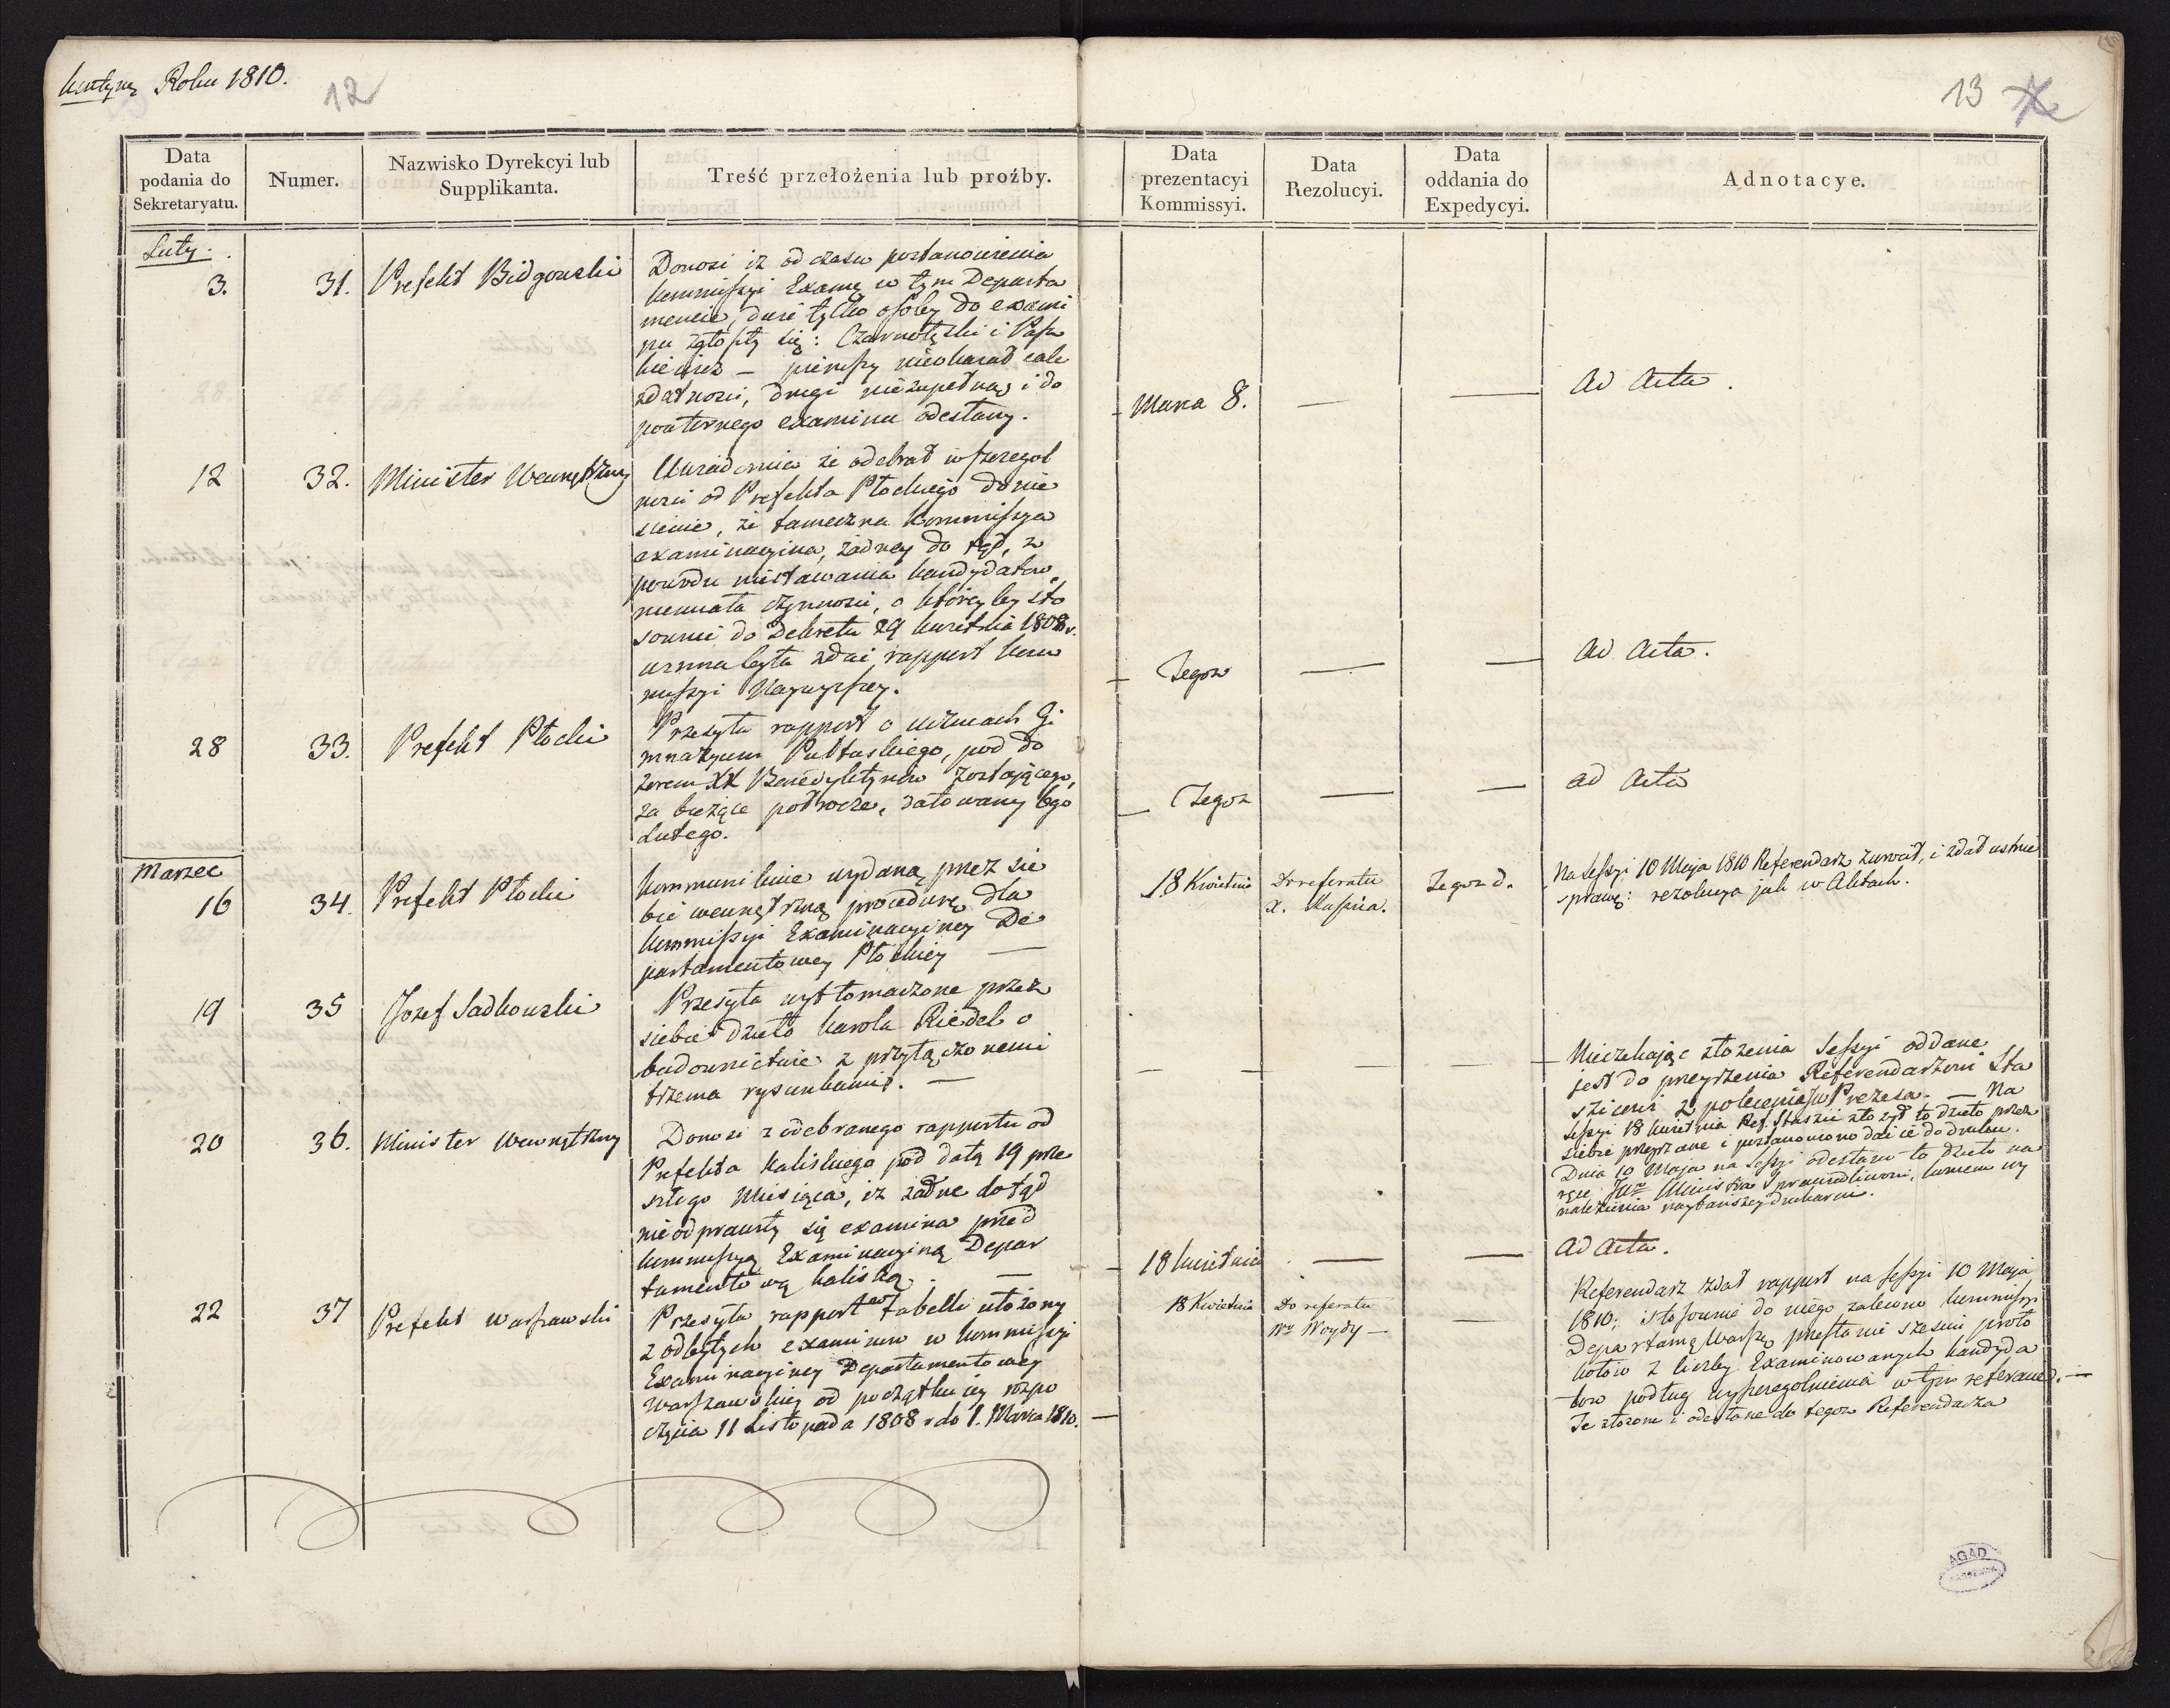 Roku 1810.
12
13
Data podania do Sekretaryatu.
Numer.
Nazwisko Dyrekcyi lub Supplikanta.
Treść przełożenia lub proźby.
Data prezentacyi Kommissyi.
Data Rezolucyi.
Data oddania do Expedycyi.
Adnotacye.
Luty.
3.
31.
Prefekt Bidgowski
Donosi iż od czasu postanowienia
Kommissyi Examę w tym Departa
mencie, dwie tylko osoby do exami
nu zgłosiły się: i
zdatności, drugi niezupełną, i do
powternego examinu odesłany.
Marca 8.
—
—
Ad Acta.
12
32.
Minister Wewnętrzny
Uwiadomia że odebrał w szczegól
ności od Prefekta Płockiego donie
sienie, że tameczna Kommissya
examinacyina, żadney do tąd, z
powodu niestawania kandydatów,
niemiała czynności, o którey by sto
sownie do Dekretu 29 Kwietnia 1808 r.
winna była zdać rapport Kom
missyi Naywyższey.
Tegoż
—
—
Ad Acta.
28
33.
Prefekt Płocki
Przesyła rapport o uczniach Gi
mnazyum Pułtuskiego, pod do
zorem XX Benedyktynów zostającego,
za bieżące półrocze, datowany 6go
Lutego.
Tegoż
—
—
ad Acta
Marzec
16
34.
Prefekt Płocki
Kommunikuie wydaną przez sie
bie wewnętrzną procedurę dla
Kommissyi Examinacyiney De
partamentowey Płockiey —
18 Kwietnia
Do referatu
X.
Tegoż d.
Na Sessyi 10 Maja 1810 Referendarz zwrócił, i zdał ustnie
sprawę: rezolucya jak w Aktach.
19
35
Jozef Sadkowski
Przesyła wytłomaczone przez
siebie dzieło Karola Riedel o
budownictwie z przyłączonemi
trzema rysunkami. —
— — — —
Nieczekając złożenia Sessyi oddane
jest do przeyrzenia Referendarzowi Sta
szicowi z polecenia JW Prezesa. — Na
Sessyi 18 Kwietnia Ref. Staszic złożył to dzieło przez
siebie przeyrzane i postanowiono dać ie do druku.
Dnia 10 Maja na Sessyi odesłano to dzieło na
ręce JW Ministra Sprawiedliwości, końcem wy
nalezienia naytańszey drukarni.
20
36.
Minister Wewnętrzny
Donosi z odebranego rapportu od
Prefekta Kaliskiego pod datą 19 prze
szłego Miesiąca, iż żadne dotąd
nieodprawiły się examina przed
Kommissyą Examinacyiną Depar
tamentową Kaliską. —
18 Kwietnia
—
—
Ad Acta.
22
37
Prefekt Warszawski
Przesyła rapport tabelli ułożony
z odbytych examinów w Kommissyi
Examinacyiney Departamentowey
Warszawskiey od początku iey rozpo
częcia 11 Listopada 1808 r do 1. Marca 1810. —
18 Kwietnia
Do referatu
Wo Woydy —
—
Referendarz zdał rapport na sessyi 10 Maja
1810; stosownie do niego zalecono Kommissyi
Departamę Warszę przesłanie sześciu proto
kołów z liczby Examinowanych kandyda
tów podług wyszczególnienia w tym referacie. —
Te złożone i odesłane do tegoż Referendarza
AGAD
WARSZAWA